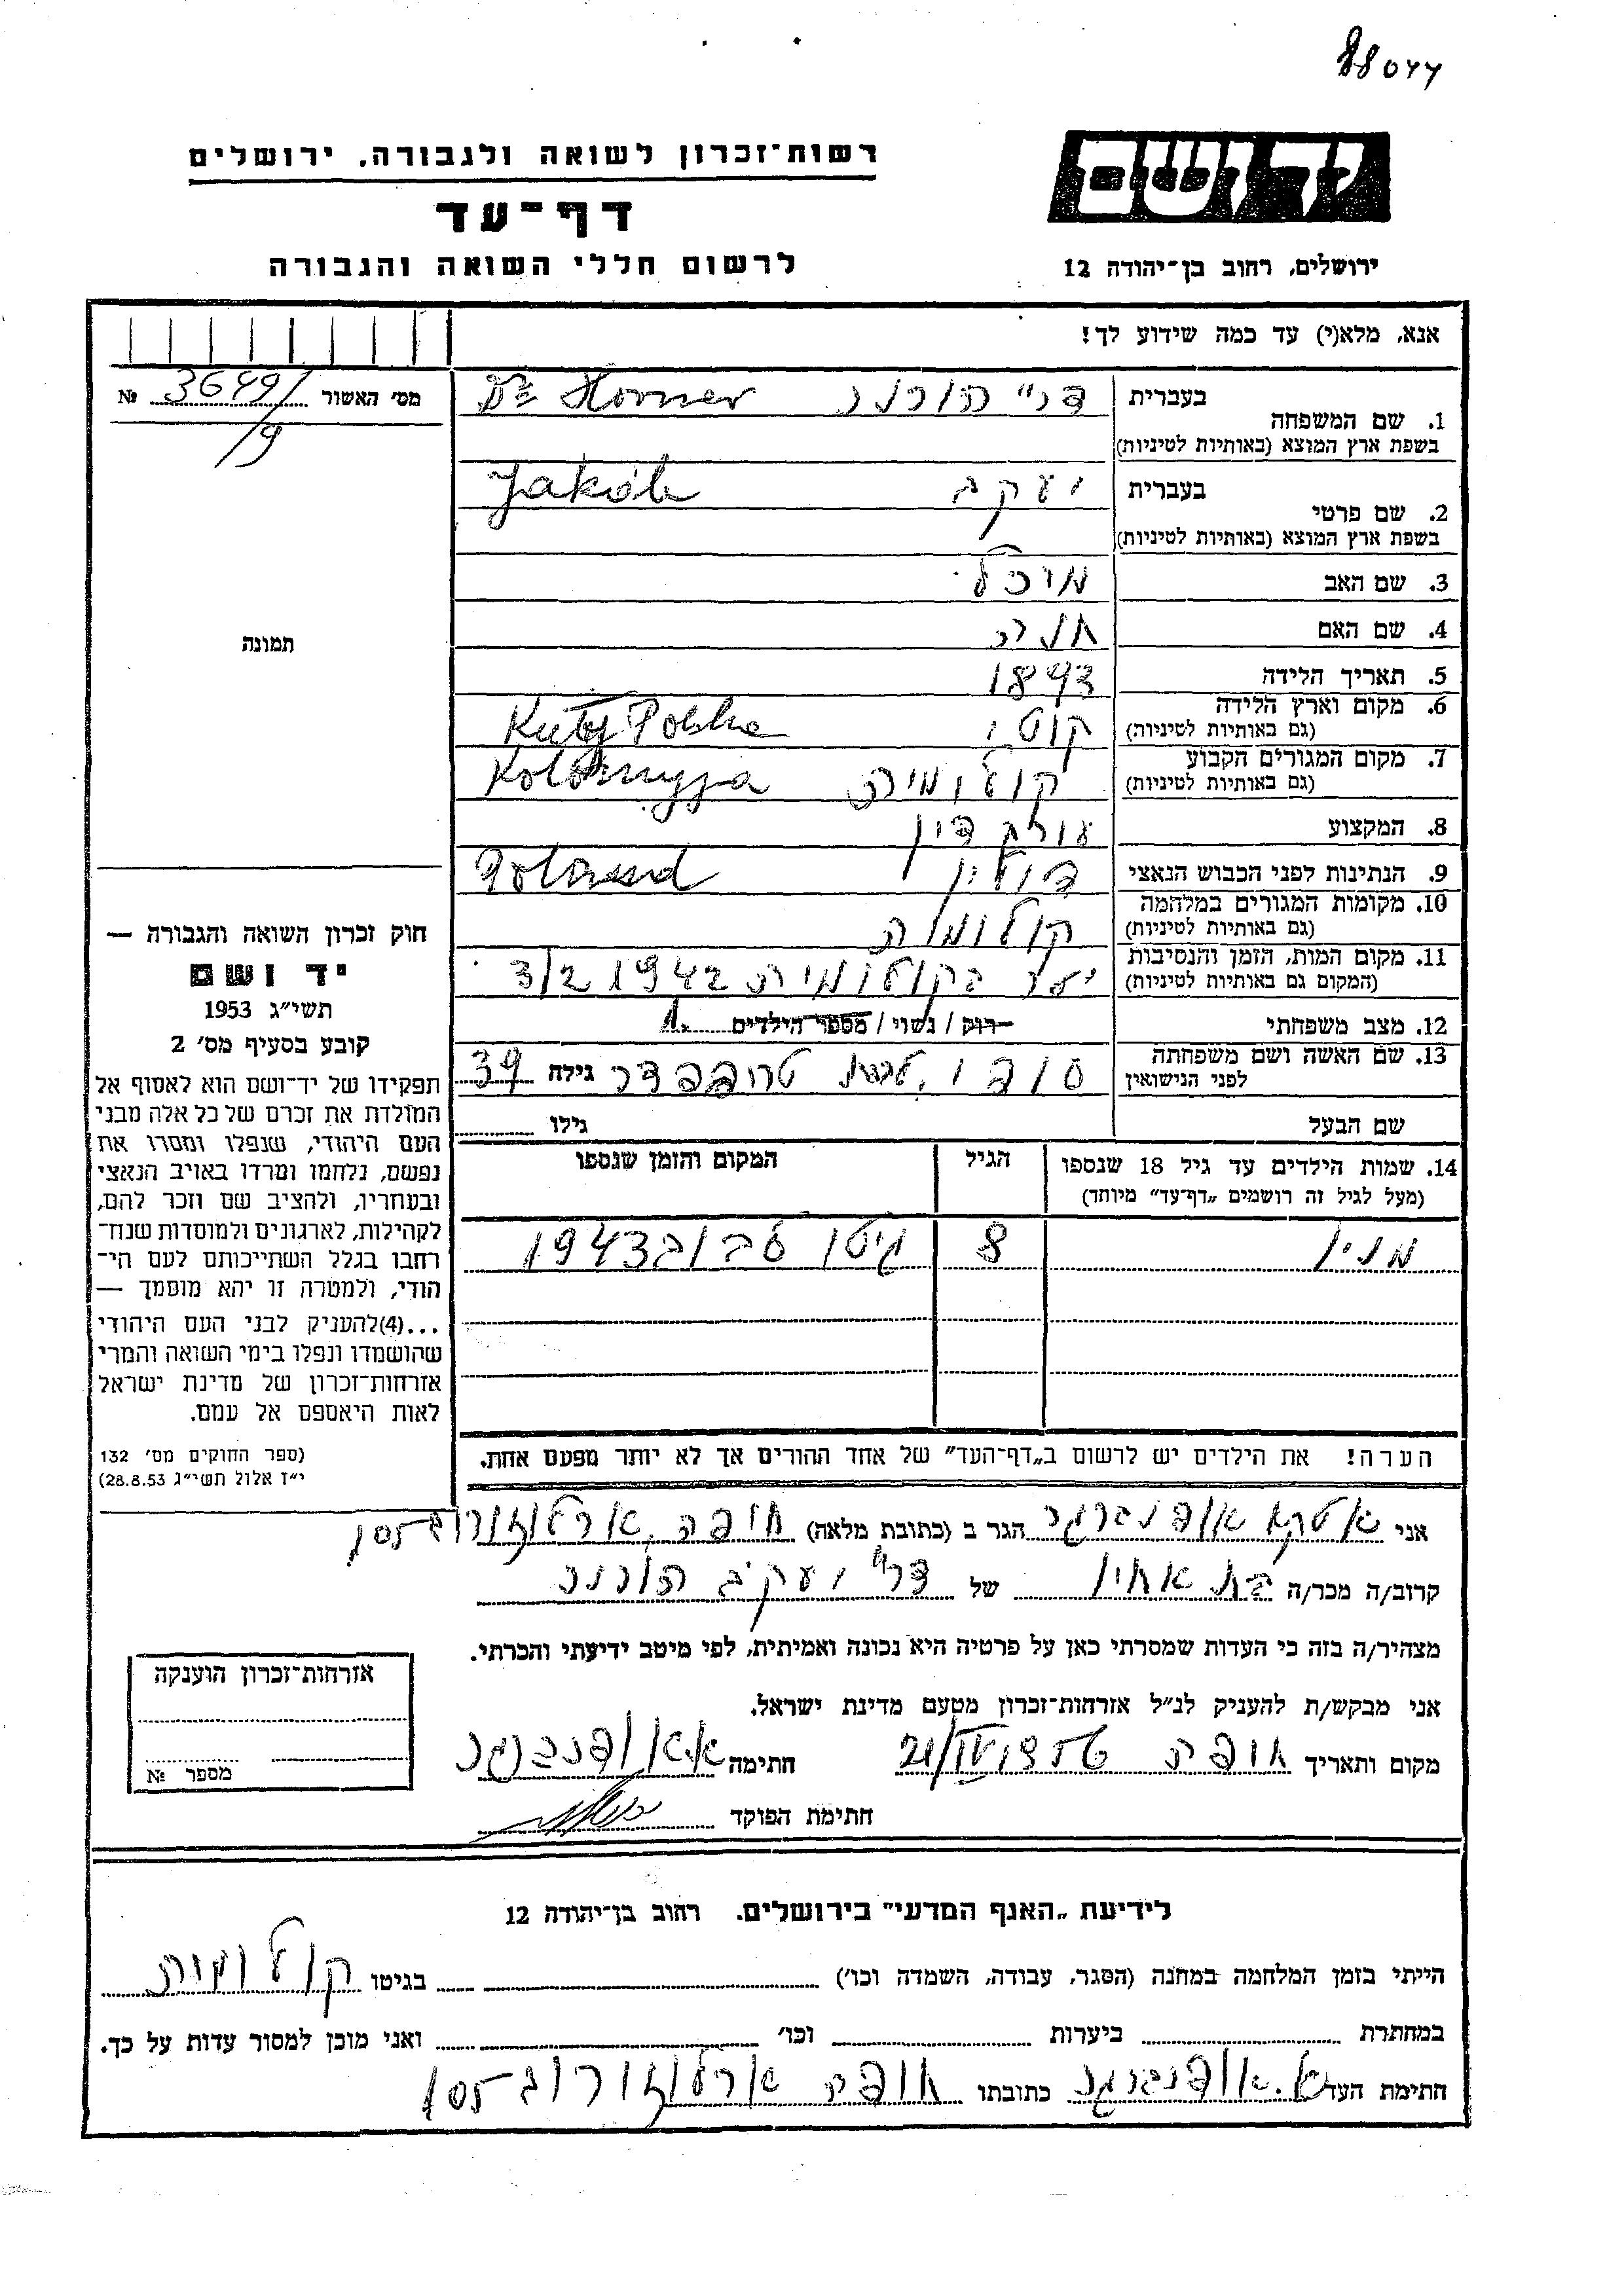 88044
רשות־זכרון לשואה ולגבורה, ירושלים
דף־עד
לרשום חללי השואה והגבורה
יד ושם
ירושלים, רחוב בן־יהודה 12
אנא, מלא(י) עד כמה שידוע לך!
מס׳ האשור 36491 №
/9
תמונה
חוק זכרון השואה והגבורה —
יד ושם
תשי״ג 1953
קובע בסעיף מס׳ 2
תפקידו של יד־ושם הוא לאסוף אל
המולדת את זכרם של כל אלה מבני
העם היהודי, שנפלו ומסרו את
נפשם, נלחמו ומרדו באויב הנאצי
ובעוזריו, ולהציב שם וזכר להם,
לקהילות, לארגונים ולמוסדות שנח־
רחבו בגלל השתייכותם לעם הי־
הודי, ולמטרה זו יהא מוסמך —
...(4)להעניק לבני העם היהודי
שהושמדו ונפלו בימי השואה והמרי
אזרחות־זכרון של מדינת ישראל
לאות היאספם אל עמם.
(ספר החוקים מס׳ 132
י״ז אלול תשי״ג 28.8.53)
1. שם המשפחה בעברית ד״ר הורנר Dr Horner
בשפת ארץ המוצא (באותיות לטיניות)
2. שם פרטי בעברית יעקב Jakób
בשפת ארץ המוצא (באותיות לטיניות)
3. שם האב מיכל
4. שם האם חנה
5. תאריך הלידה 1893
6. מקום וארץ הלידה קוטי Kuty Polska
(גם באותיות לטיניות)
7. מקום המגורים הקבוע קולומיה Kolomyja
(גם באותיות לטיניות)
8. המקצוע עורך דין
9. הנתינות לפני הכבוש הנאצי פולין Poland
10. מקומות המגורים במלחמה קולומיה
(גם באותיות לטיניות)
11. מקום המות, הזמן והנסיבות יער בקולומיה 3/2 1942
(המקום גם באותיות לטיניות)
12. מצב משפחתי רוק / נשוי / מספר הילדים 1.
13. שם האשה ושם משפחתה גילה 39
לפני הנישואין
שם הבעל גילו
14. שמות הילדים עד גיל 18 שנספו הגיל המקום והזמן שנספו
(מעל לגיל זה רושמים „דף־עד״ מיוחד)
מנין 8 גיטו לבוב 1943
הערה! את הילדים יש לרשום ב„דף־העד״ של אחד ההורים אך לא יותר מפעם אחת.
אני אטקא אופנברגר הגר ב (כתובת מלאה) חיפה, ארלוזורוב 105
קרוב/ה מכר/ה בת אחיו של ד״ר יעקב הורנר
מצהיר/ה בזה כי העדות שמסרתי כאן על פרטיה היא נכונה ואמיתית, לפי מיטב ידיעתי והכרתי.
אני מבקש/ת להעניק לנ״ל אזרחות־זכרון מטעם מדינת ישראל.
מקום ותאריך חיפה 21/IV 1956 חתימה א. אופנברגר
חתימת הפוקד
אזרחות־זכרון הוענקה
מספר №
לידיעת „האגף המדעי״ בירושלים. רחוב בן־יהודה 12
הייתי בזמן המלחמה במחנה (הסגר, עבודה, השמדה וכו׳) בגיטו קולומיה
במחתרת ביערות וכו׳ ואני מוכן למסור עדות על כך.
חתימת העד א. אופנברגר כתובתו חיפה ארלוזורוב 105